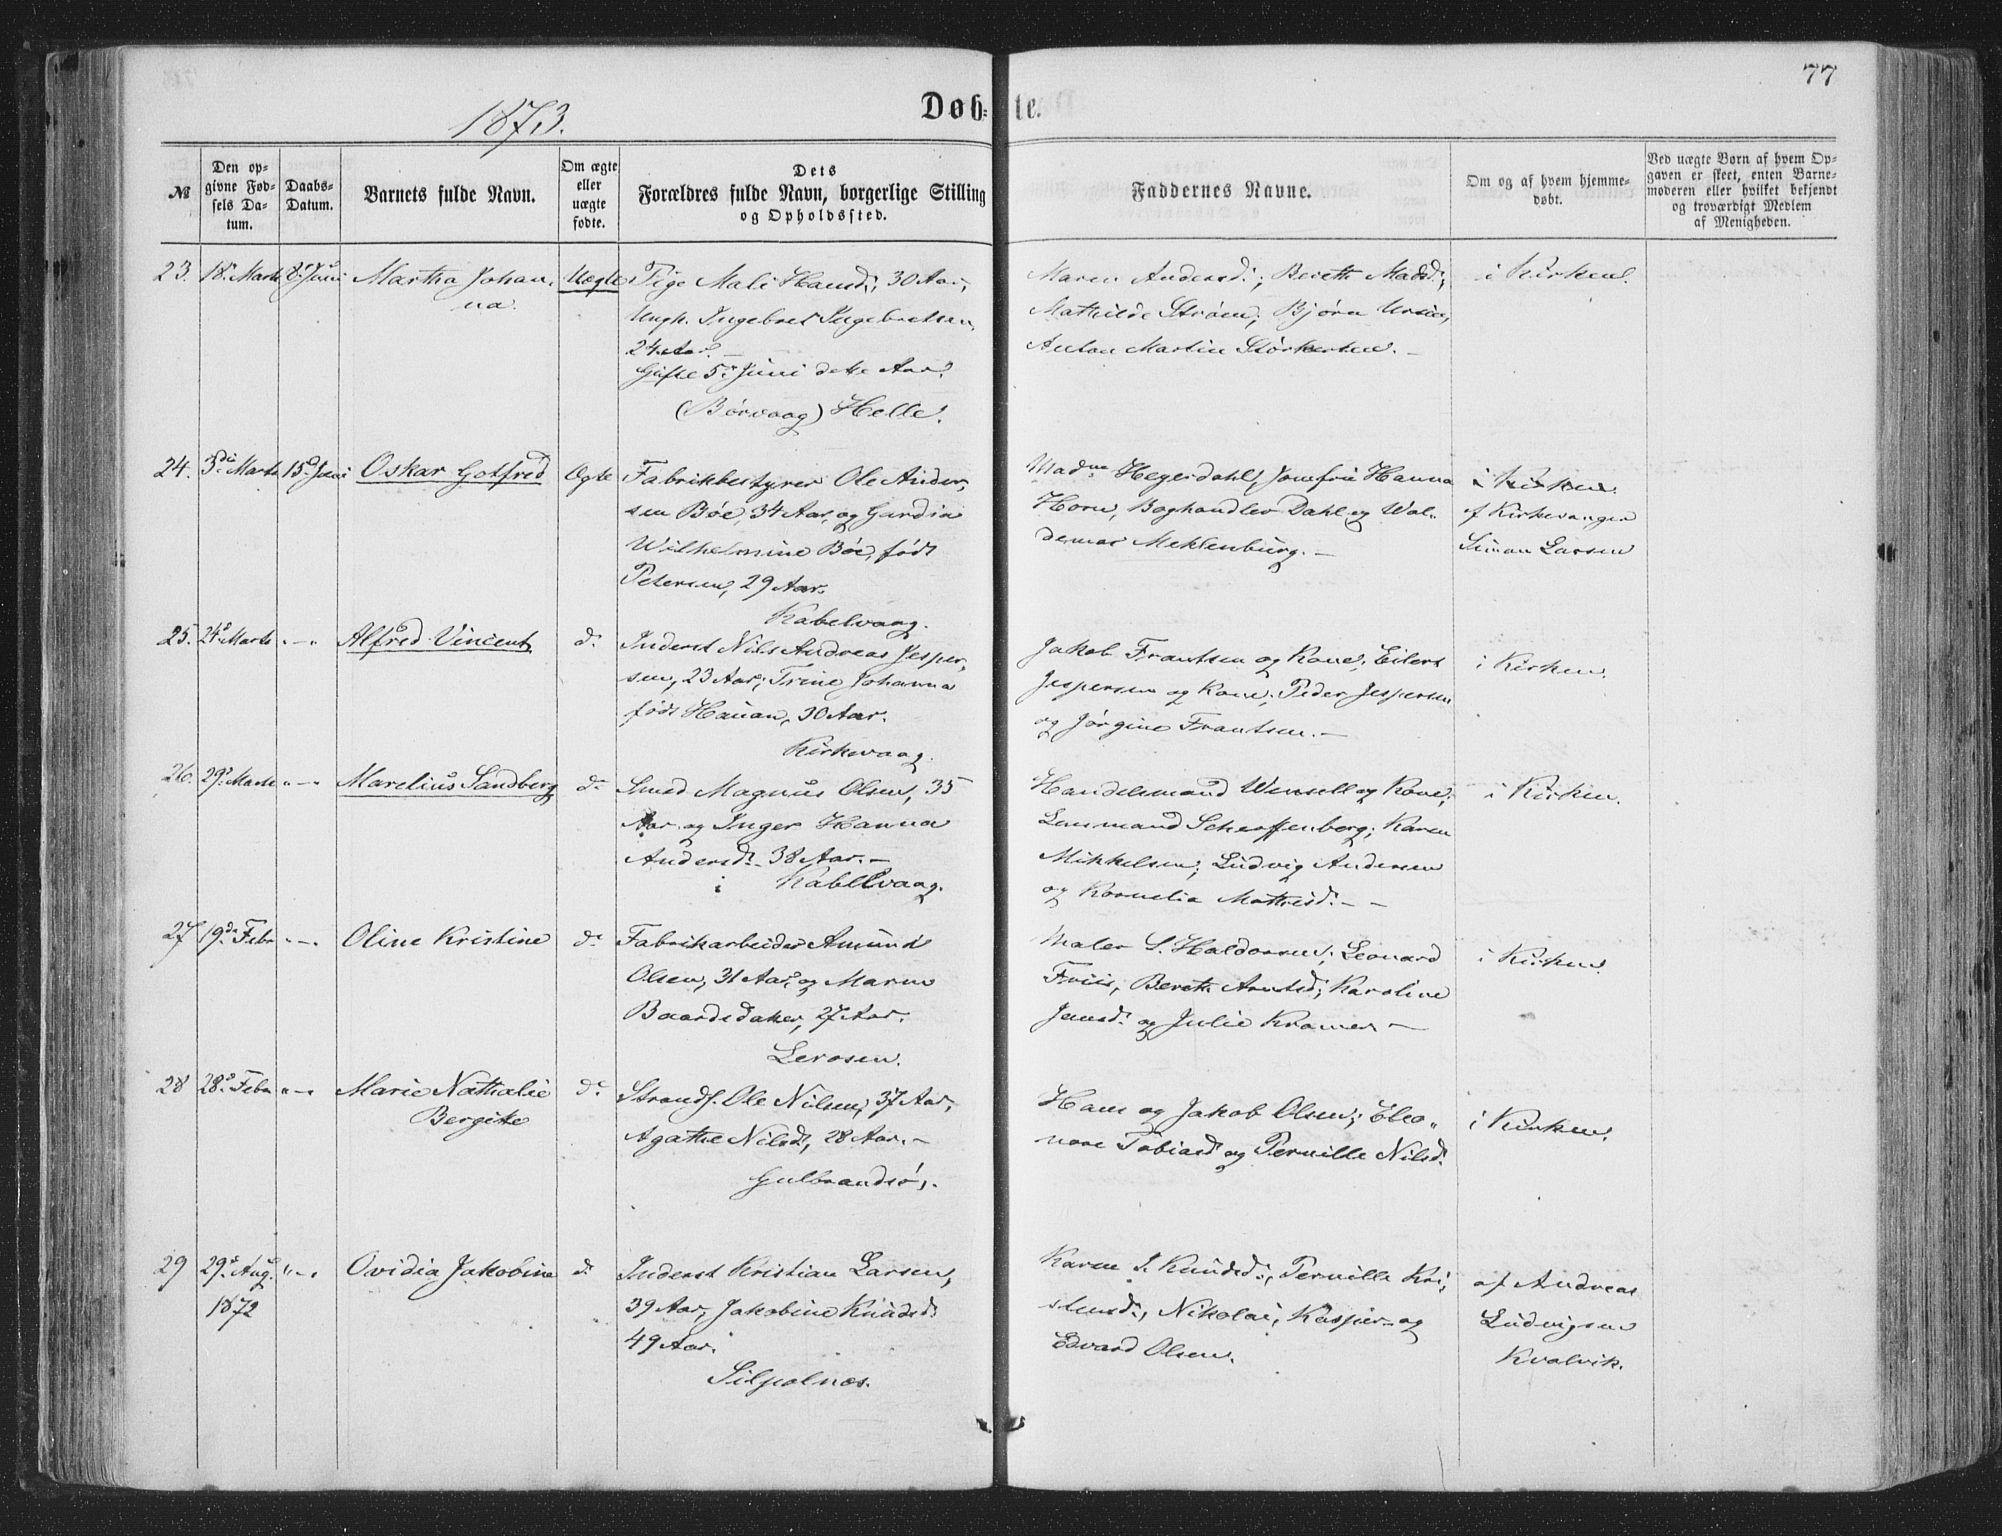 77
1873.
Døb- te.
№
Den opgivne Fødsels Datum.
Daabs-Datum.
Barnets fulde Navn.
Om ægte eller uægte fødte.
Dets Forældres fulde Navn, borgerlige Stilling og Opholdssted.
Faddernes Navne.
Om og af hvem hjemmedøbt.
Ved uægte Børn af hvem Opgaven er skeet, enten Barnemoderen eller hvilket bekjendt og troværdigt Medlem af Menigheden.
23. 18 Marts 8 Juni Martha Johanna. Uægte
Pige Mali Hansd., 30 Aar,
Ungk. Ingebret Ingebretsen,
24 Aar. –
Gifte 5. Juni dette Aar.
(Børvaag) Helle.
Maren Andersd.; Bereth Madsd.;
Mathilde Strøm; Bjørn Ursin,
Anton Martin Størkersen. –
i Kirken.
24. 3die Marts 15d Juni Oskar Gotfred Ægte
Fabrikbestyrer Ole Andersen
Bøe, 34 Aar, og Gurdia
Wilhelmine Bøe, født
Petersen, 29 Aar.
Kabelvaag.
Madme Hegerdahl, Jomfru Hanna
Horn, Boghandler Dahl og Waldemar
Meklenburg. –
i Kirken.
af Kirkesanger
Simon Larsen
25. 24d Marts " – " Alfred Vincent do
Inderst Nils Andreas Jespersen,
23 Aar; Trine Johanna
født Hanan, 30 Aar.
Kirkevaag.
Jakob Frantsen og Kone; Eilert
Jespersen og Kone; Peder Jespersen
og Jørgine Frantsen. –
i Kirken.
26. 29d Marts " – " Marelius Sandberg do
Smed Magnus Olsen, 35
Aar og Inger Hanna
Andersd. 38 Aar. –
i Kabelvaag.
Handelsmand Wensell og Kone;
Lensmand Scheffenberg; Karen
Mikkelsen; Ludvig Andersen
og Kornelia Mathisd. – –
i Kirken.
27 19de Febr " – " Oline Kristine do
Fabrikarbeider Amund
Olsen, 31 Aar, og Maren
Baardsdatter, 27 Aar.
Lerosen.
Maler S. Haldorsen; Leonard
Friis; Bereth Arntsd.; Karoline
Jensd. og Julie Kramer –
i Kirken.
28 28d Febr " – " Marie Nathalie Bergitte do
Strands. Ole Nilsen, 37 Aar,
Agathe Nilsd., 28 Aar. –
Gulbrandsø,.
Hans og Jakob Olsen; Eleonore
Tobiasd og Pernille Nilsd.
i Kirken.
29 29d Aug. 1872 " – " Ovidia Jakobine do
Inderst Kristian Larsen,
39 Aar, Jakobine Knudsd.
49 Aar.
Silpolnes.
Karen S. Knudsd., Pernille Kristensd.,
Nikolai, Kasper og
Edvard Olsen.
af Andreas
Ludvigsen
Kvalvik.